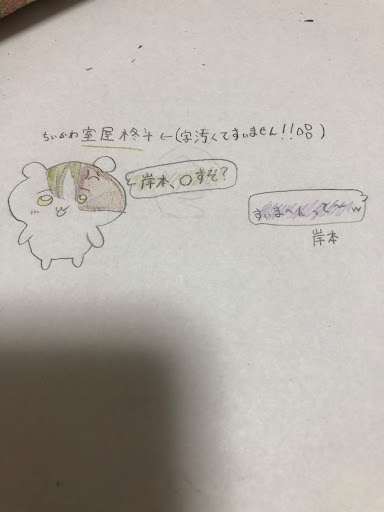 ちいかわ室屋柊斗←(字汚くてすいません!!)
岸本、〇すぞ?
すいませ
岸本